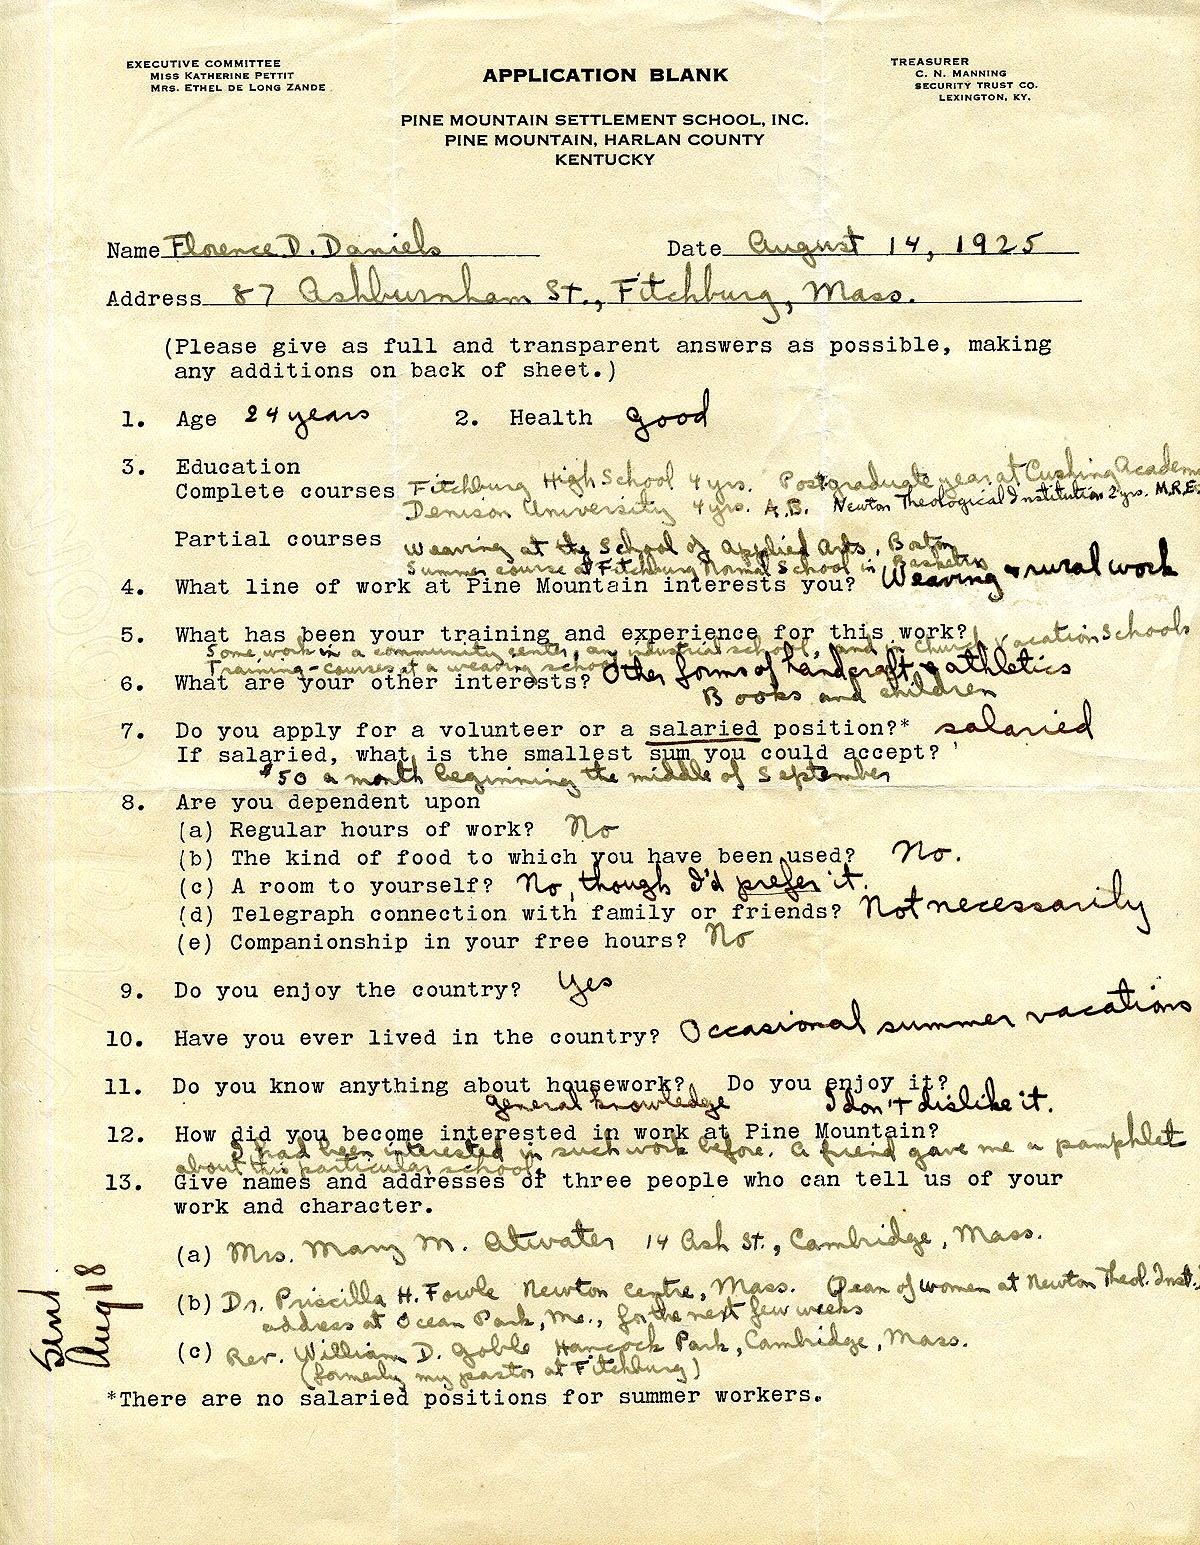 EXECUTIVE COMMITTEE
MISS KATHERINE PETTIT
MRS. ETHEL DE LONG ZANDE
TREASURER
C. N. MANNING
SECURITY TRUST CO.
LEXINGTON, KY.
APPLICATION BLANK
PINE MOUNTAIN SETTLEMENT SCHOOL, INC.
PINE MOUNTAIN, HARLAN COUNTY
KENTUCKY
Name Florence D. Daniels Date August 14, 1925
Address 87 Ashburnham St., Fitchburg, Mass.
(Please give as full and transparent answers as possible, making
any additions on back of sheet.)
1. Age 24 years 2. Health good
3. Education
Fitchburg High School 4 yrs. Postgraduate year at Cushing Academy
Complete courses
Denison University 4 yrs. A.B. Newton Theological Institution 2 yrs. M.R.E.
Partial courses Weaving at the School of Applied Arts, Boston
Summer course at Fitchburg Normal School in Basketry
4. What line of work at Pine Mountain interests you? Weaving & rural work
5. What has been your training and experience for this work?
Some work in a community center, an industrial school, and in Church Vacation Schools
Training - courses at a weaving school
6. What are your other interests? Other forms of handcraft & athletics
Books and children
7. Do you apply for a volunteer or a salaried position?* salaried
If salaried, what is the smallest sum you could accept?
$50 a month beginning the middle of September
8. Are you dependent upon
(a) Regular hours of work? No
(b) The kind of food to which you have been used? No.
(c) A room to yourself? No, though I'd prefer it.
(d) Telegraph connection with family or friends? Not necessarily
(e) Companionship in your free hours? No
9. Do you enjoy the country? Yes
10. Have you ever lived in the country? Occasional summer vacations
11. Do you know anything about housework? Do you enjoy it?
general knowledge I don't dislike it.
12. How did you become interested in work at Pine Mountain?
I had been interested in such work before. A friend gave me a pamphlet
about this particular school.
13. Give names and addresses of three people who can tell us of your
work and character.
(a) Mrs. Mary M. Atwater 14 Ash St., Cambridge, Mass.
(b) Dr. Priscilla H. Fowle Newton Centre, Mass. Dean of women at Newton Theol. Inst.
address at Ocean Park, Me., for the next few weeks
(c) Rev. William D. Goble Hancock Park, Cambridge, Mass.
(formerly my pastor at Fitchburg)
*There are no salaried positions for summer workers.
Sent
Aug 18